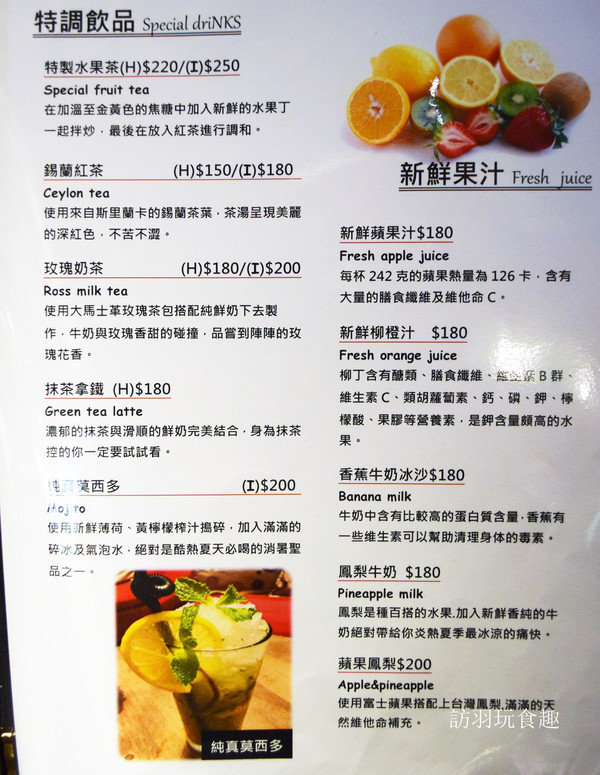 特調飲品 Special driNKS
特製水果茶(H)$220/(I)$250
Special fruit tea
在加溫至金黃色的焦糖中加入新鮮的水果丁
一起拌炒，最後在放入紅茶進行調和。
錫蘭紅茶 (H)$150/(I)$180
Ceylon tea
使用來自斯里蘭卡的錫蘭茶葉，茶湯呈現美麗
的深紅色，不苦不澀。
玫瑰奶茶 (H)$180/(I)$200
Ross milk tea
使用大馬士革玫瑰茶包搭配純鮮奶下去製
作，牛奶與玫瑰香甜的碰撞，品嘗到陣陣的玫
瑰花香。
抹茶拿鐵 (H)$180
Green tea latte
濃郁的抹茶與滑順的鮮奶完美結合，身為抹茶
控的你一定要試試看。
純真莫西多 (I)$200
Mojito
使用新鮮薄荷、黃檸檬榨汁搗碎，加入滿滿的
碎冰及氣泡水，絕對是酷熱夏天必喝的消暑聖
品之一。
純真莫西多
新鮮果汁 Fresh juice
新鮮蘋果汁$180
Fresh apple juice
每杯 242 克的蘋果熱量為 126 卡，含有
大量的膳食纖維及維他命 C。
新鮮柳橙汁 $180
Fresh orange juice
柳丁含有醣類、膳食纖維、維生素 B 群、
維生素 C、類胡蘿蔔素、鈣、磷、鉀、檸
檬酸、果膠等營養素，是鉀含量頗高的水
果。
香蕉牛奶冰沙$180
Banana milk
牛奶中含有比較高的蛋白質含量，香蕉有
一些維生素可以幫助清理身體的毒素。
鳳梨牛奶 $180
Pineapple milk
鳳梨是種百搭的水果,加入新鮮香純的牛
奶絕對帶給你炎熱夏季最冰涼的痛快。
蘋果鳳梨$200
Apple&pineapple
使用富士蘋果搭配上台灣鳳梨,滿滿的天
然維他命補充。
訪羽玩食趣